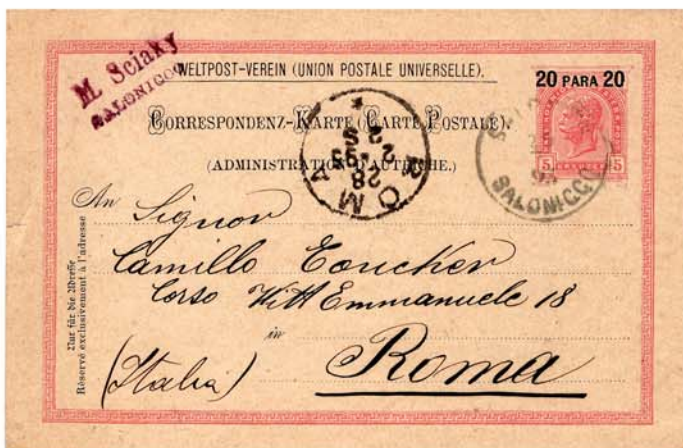 M. Sciaky
SALONICCO
WELTPOST-VEREIN (UNION POSTALE UNIVERSELLE).
20 PARA 20
CORRESPONDENZ-KARTE (CARTE POSTALE).
(ADMINISTRATION D'AUTRICHE.)
5 KREUZER 5
SALONICCO
ROMA
28
An Signor
Camillo Eoucker
Corso Vitt Emmanuele 18
in
(Italia) Roma
Nur für die Adresse
Réservé exclusivement à l'adresse